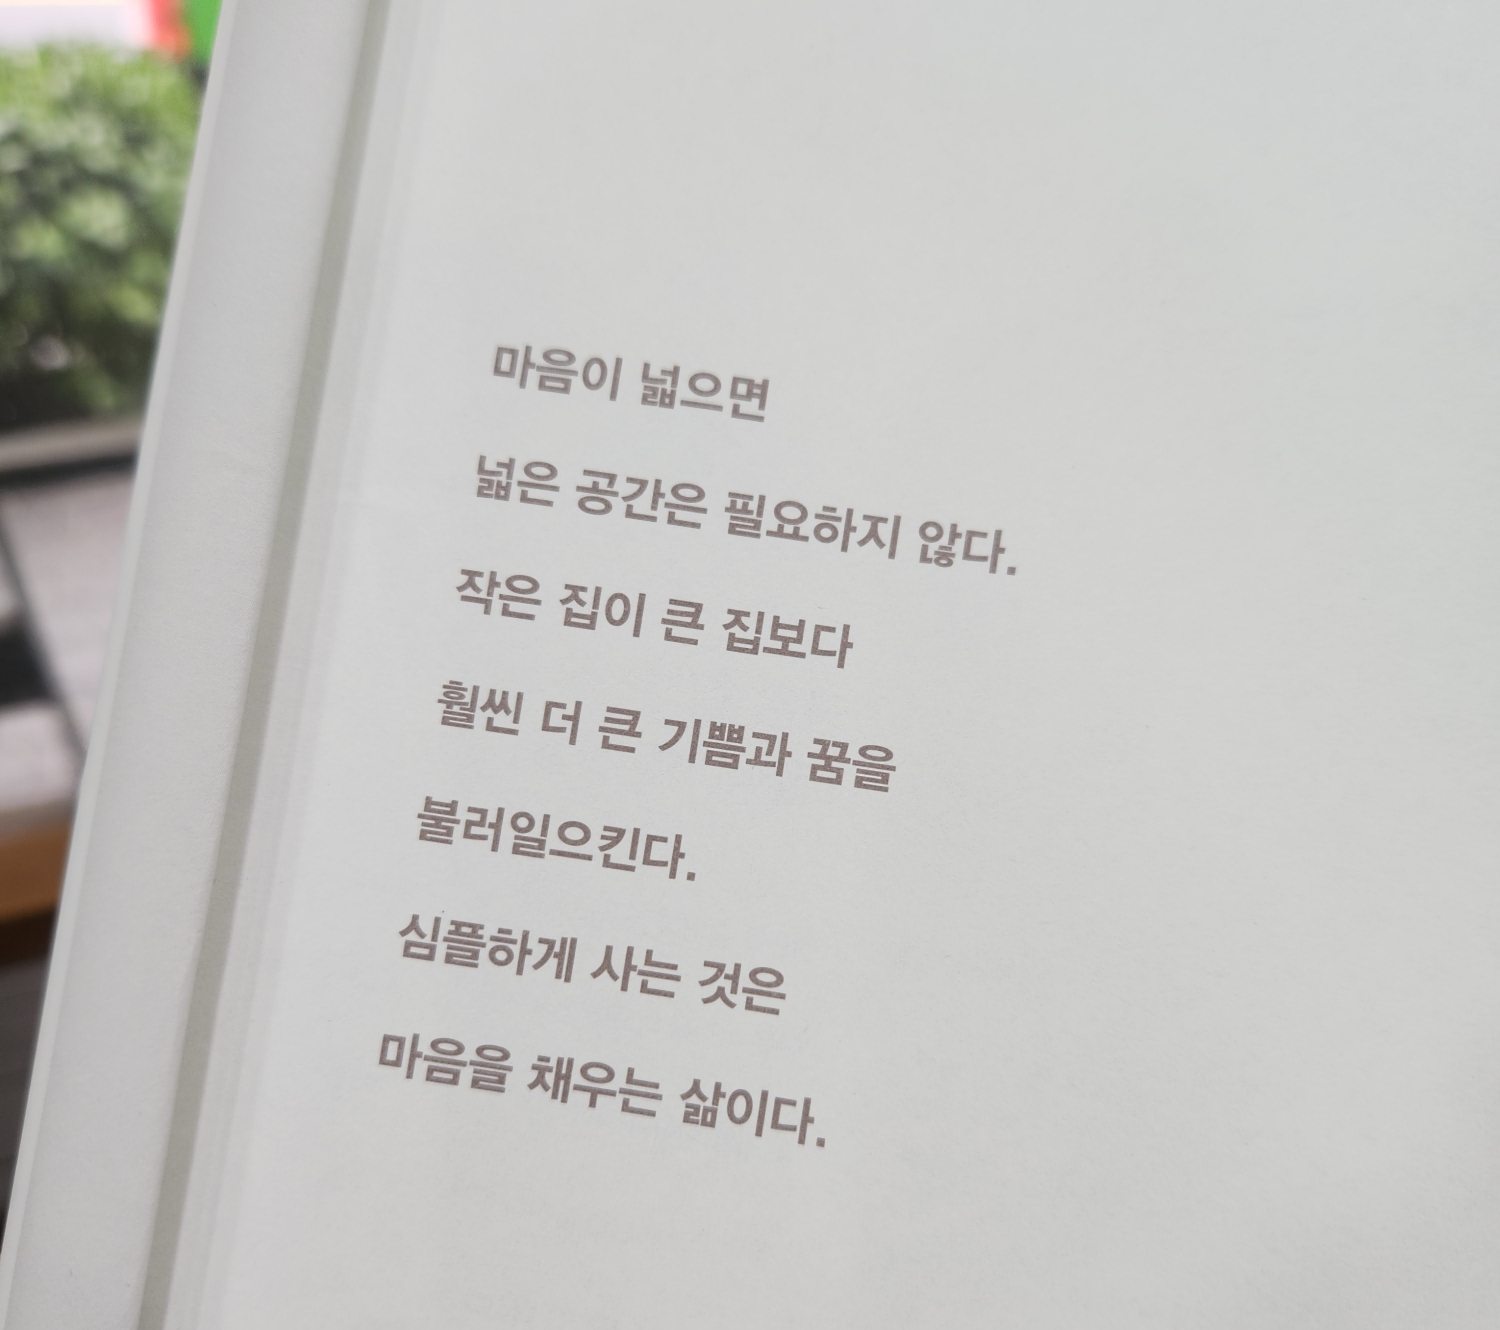 마음이 넓으면
넓은 공간은 필요하지 않다.
작은 집이 큰 집보다
훨씬 더 큰 기쁨과 꿈을
불러일으킨다.
심플하게 사는 것은
마음을 채우는 삶이다.